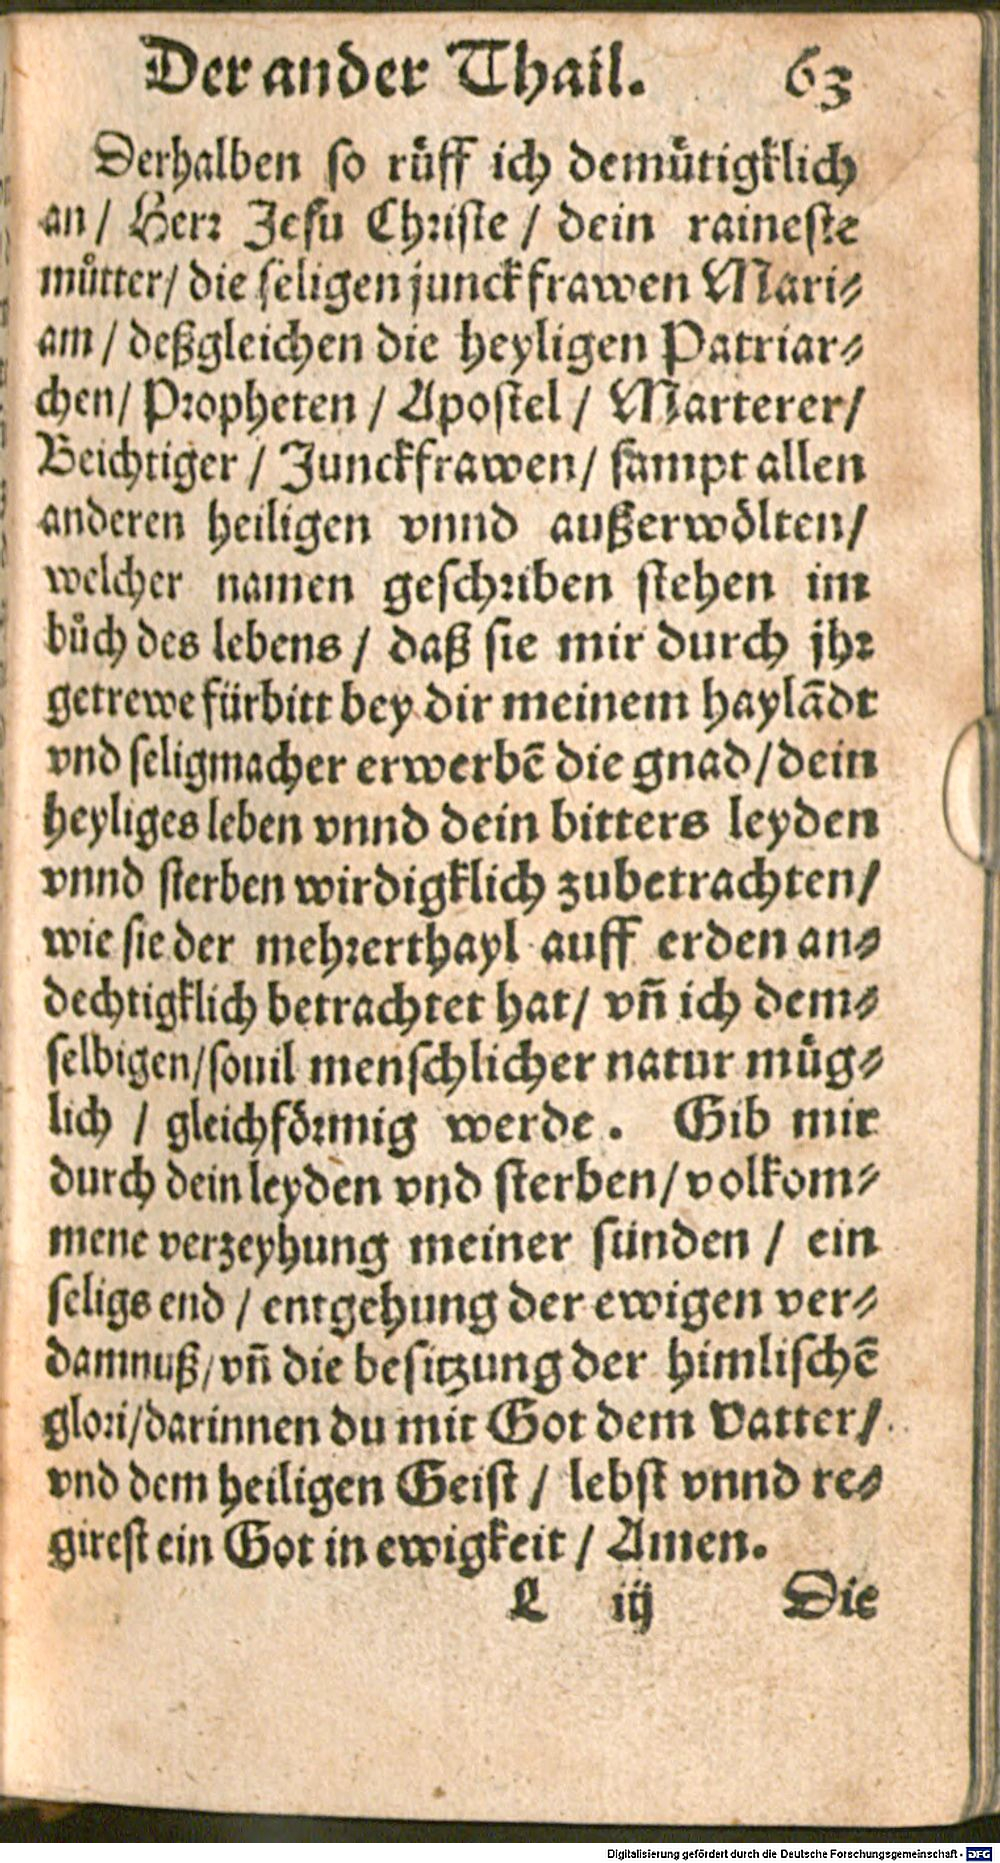 Der ander Thail. 63
Derhalben so rüff ich demütigklich
an / Herr Jesu Christe / dein raineste
můtter / die seligen junckfrawen Mari⸗
am / deßgleichen die heyligen Patriar⸗
chen / Propheten / Apostel / Marterer /
Beichtiger / Junckfrawen / sampt allen
anderen heiligen vnnd außerwölten /
welcher namen geschriben stehen im
bůch des lebens / daß sie mir durch jhr
getrewe fürbitt bey dir meinem haylādt
vnd seligmacher erwerbē die gnad / dein
heyliges leben vnnd dein bitters leyden
vnnd sterben wirdigklich zubetrachten /
wie sie der mehrerthayl auff erden an⸗
dechtigklich betrachtet hat / vn̄ ich dem⸗
selbigen / souil menschlicher natur müg⸗
lich / gleichförmig werde . Gib mir
durch dein leyden vnd sterben / volkom⸗
mene verzeyhung meiner sünden / ein
seligs end / entgehung der ewigen ver⸗
damnuß / vn̄ die besitzung der himlischē
glori / darinnen du mit Got dem Vatter /
vnd dem heiligen Geist / lebst vnnd re⸗
girest ein Got in ewigkeit / Amen.
L iij Die
Digitalisierung gefördert durch die Deutsche Forschungsgemeinschaft - DFG